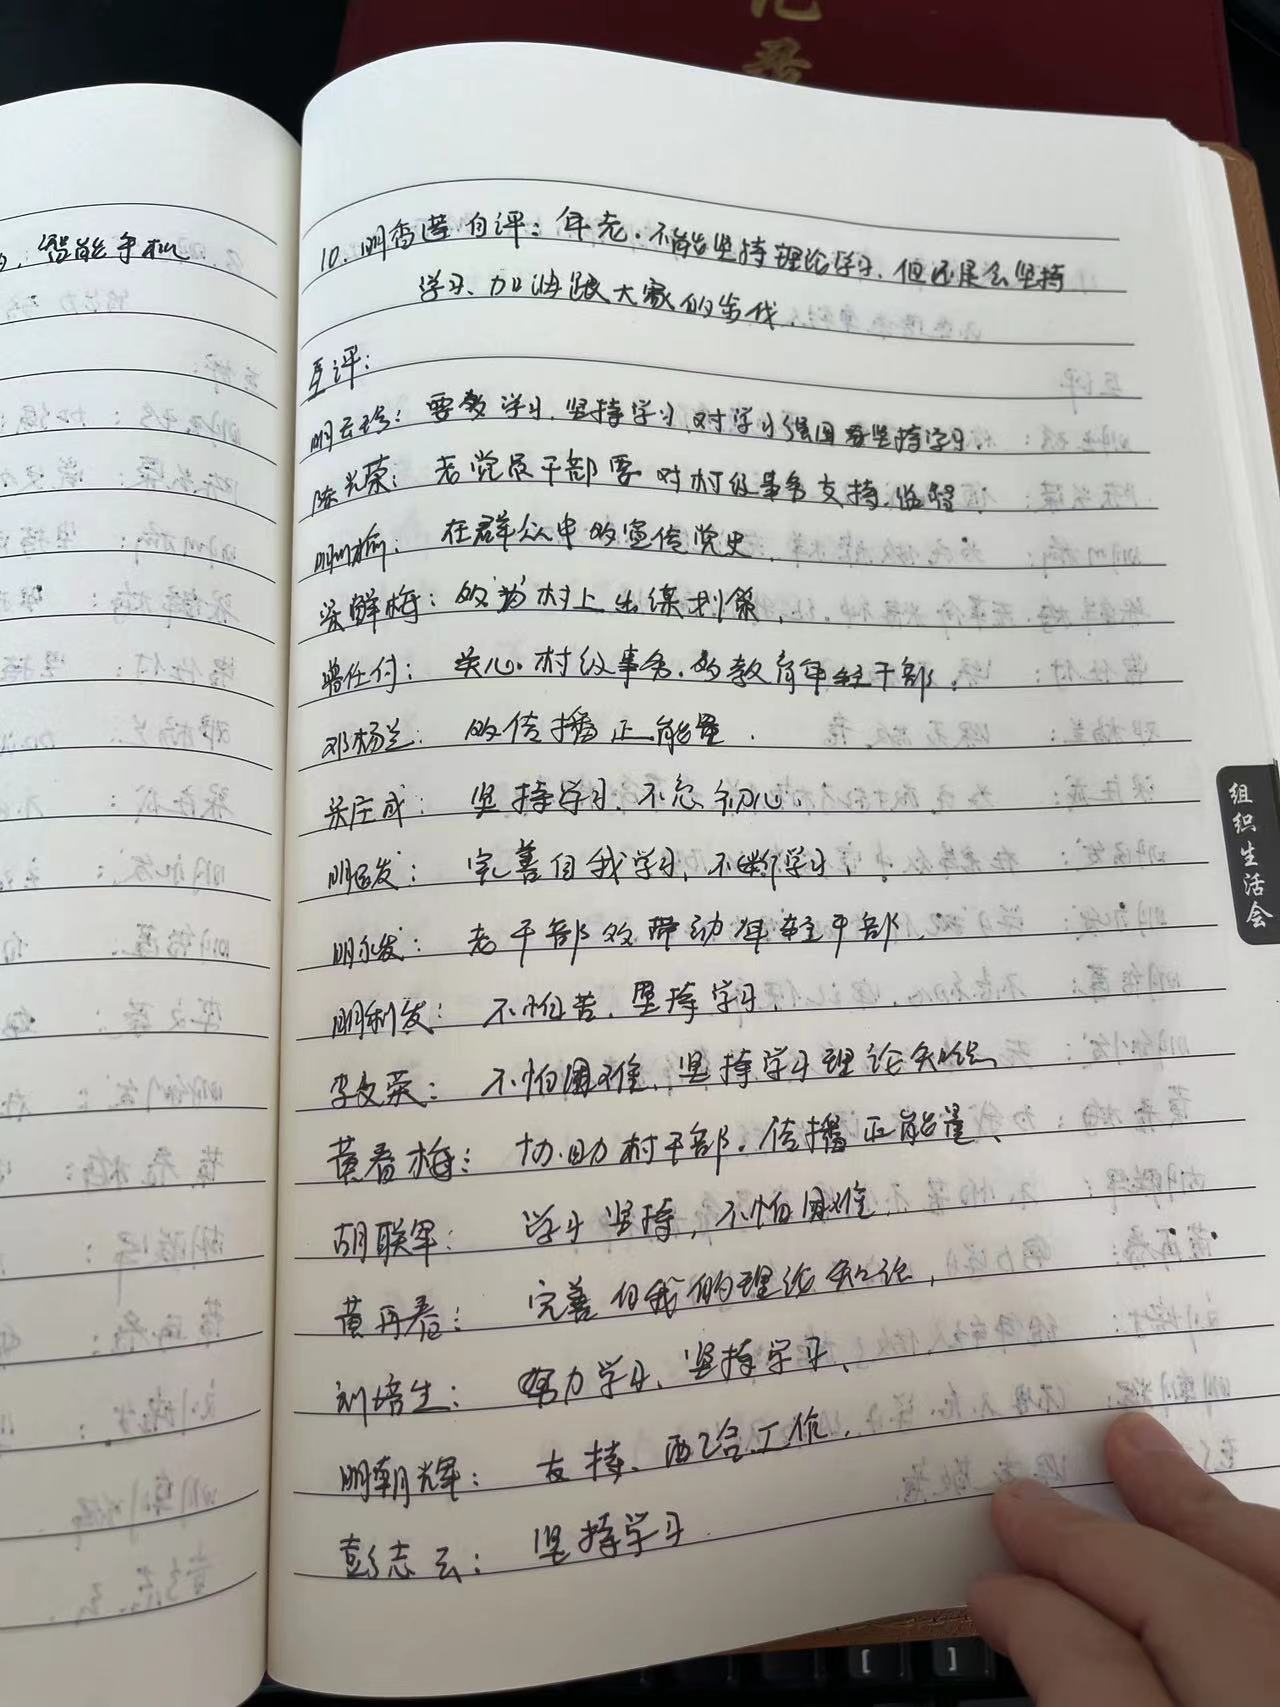 记
录
智能手机
10.明香莲自评：年老.不能坚持理论学习.但还是会坚持
学习、加油跟大家的步伐.
互评：
明云珍：要多学习.坚持学习.对学习强国要坚持学习.
陈光荣：老党员干部要对村级事务支持.监督
明川榆：在群众中的宣传党史.
梁鲜梅：的为村上出谋划策.
曾任付：关心村级事务.的教育年轻干部.
邓杨兰：的传播正能量.
梁庄成：坚持学习、不忘初心.
明远发：完善自我学习，不断学习.
明永发：老干部的带动年轻干部.
明利发：不怕苦.坚持学习.
李文荣：不怕困难、坚持学习理论知识
黄春梅：协助村干部.传播正能量、
胡联军：学习坚持，不怕困难.
黄再春：完善自我的理论知识，
刘培生：努力学习、坚持学习、
明朝辉：支持、配合工作.
彭志云：坚持学习
组织生活会